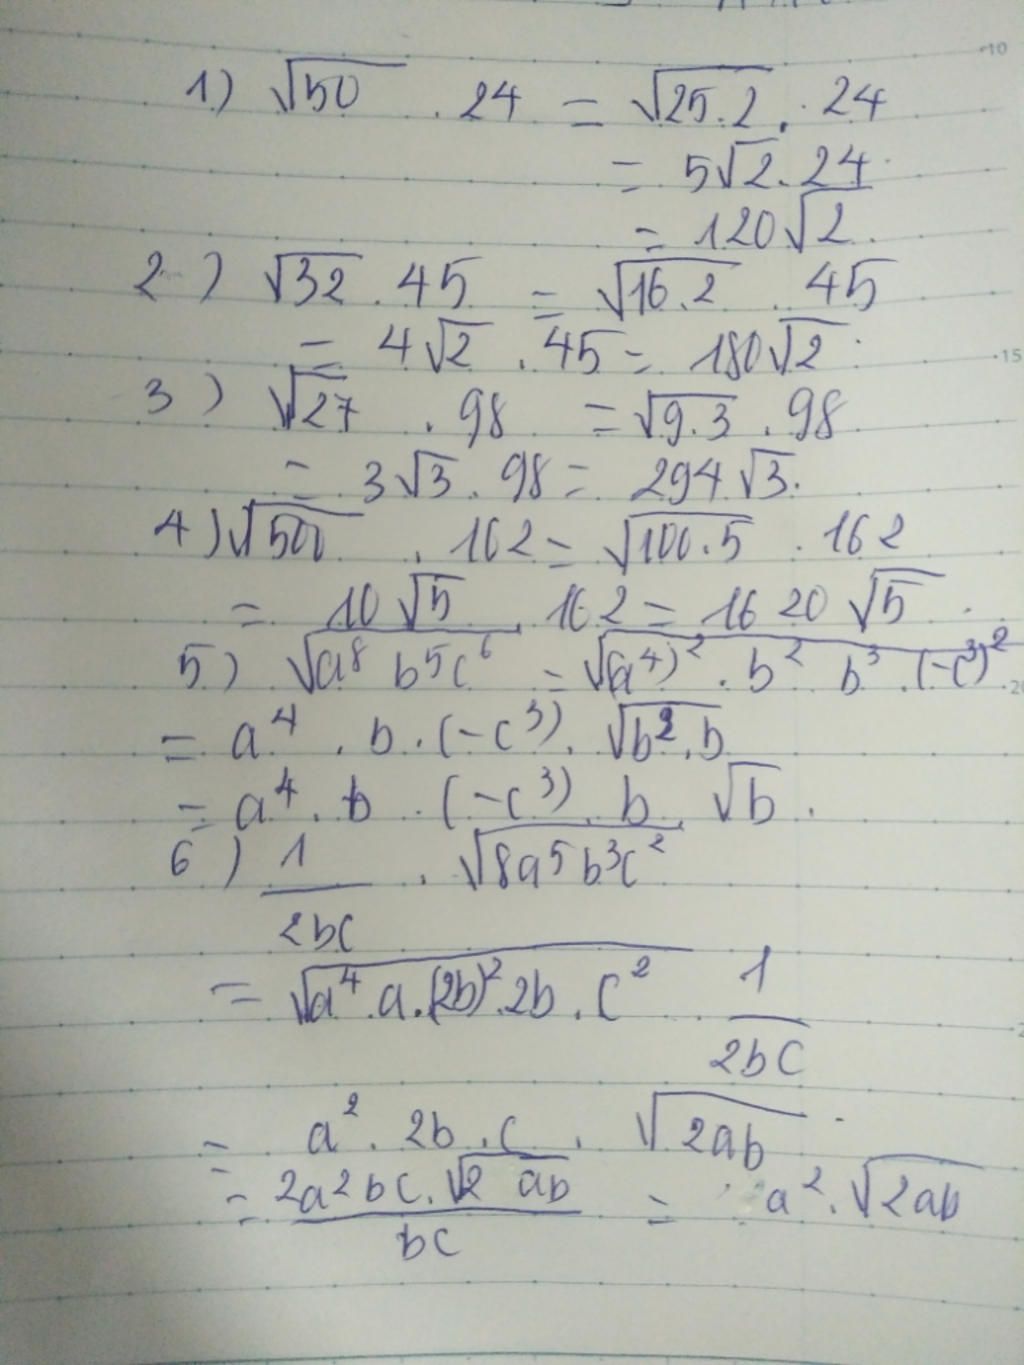 1) √50 . 24 = √25.2 . 24
= 5√2 . 24
= 120√2.
2) √32 . 45 = √16.2 . 45
= 4√2 . 45 = 180√2.
3) √27 . 98 = √9.3 . 98
= 3√3 . 98 = 294√3.
4) √500 . 162 = √100.5 . 162
= 10√5 . 162 = 1620√5.
5) √a⁸ b⁵c⁶ = √(a⁴)² . b² b³ . (-c³)²
= a⁴ . b . (-c³) . √b².b
= a⁴ . b . (-c³) . b √b.
6) 1/2bc . √8a⁵b³c²
= √a⁴.a.(2b)².2b.c² . 1/2bc
= a² . 2b . c . √2ab
= 2a²bc.√2ab/bc = a².√2ab
10
15